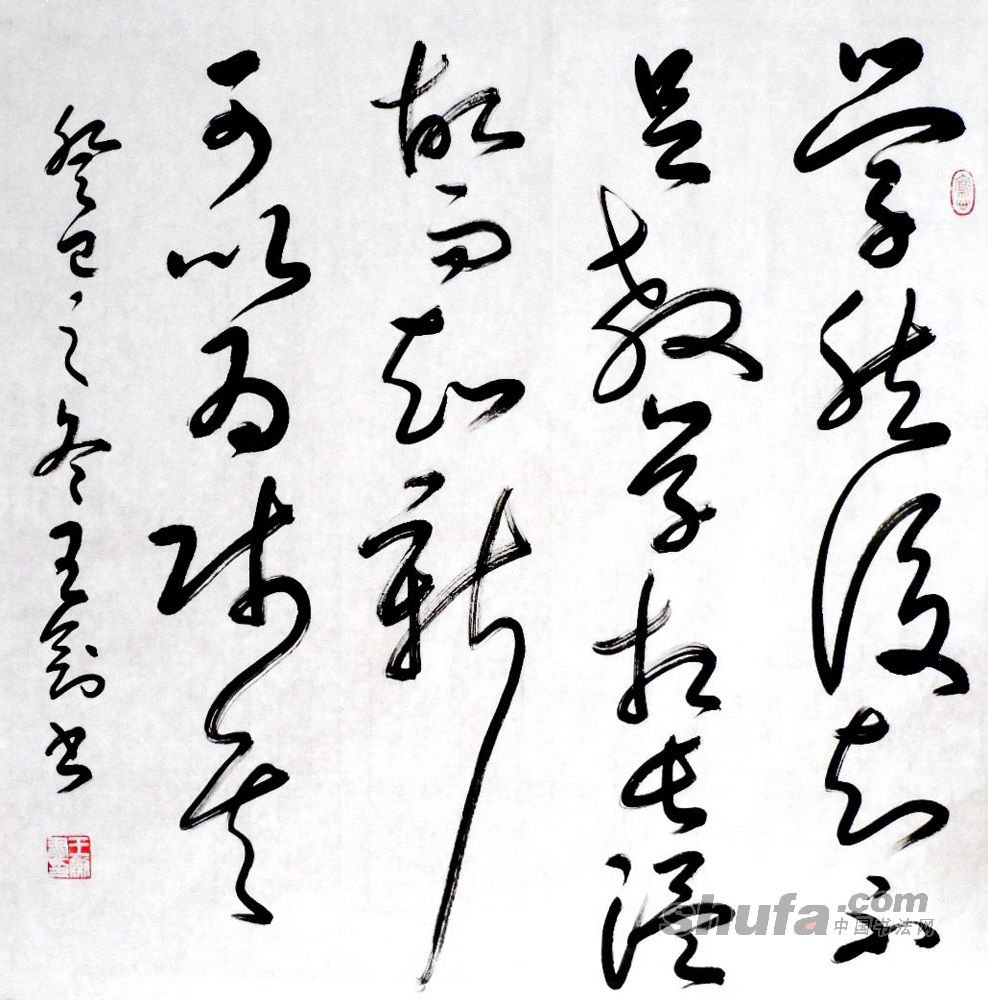 学然後知不
足教学相长温
故而知新
可以为师矣
癸巳之冬王剑书
shufa.com
中国书法网